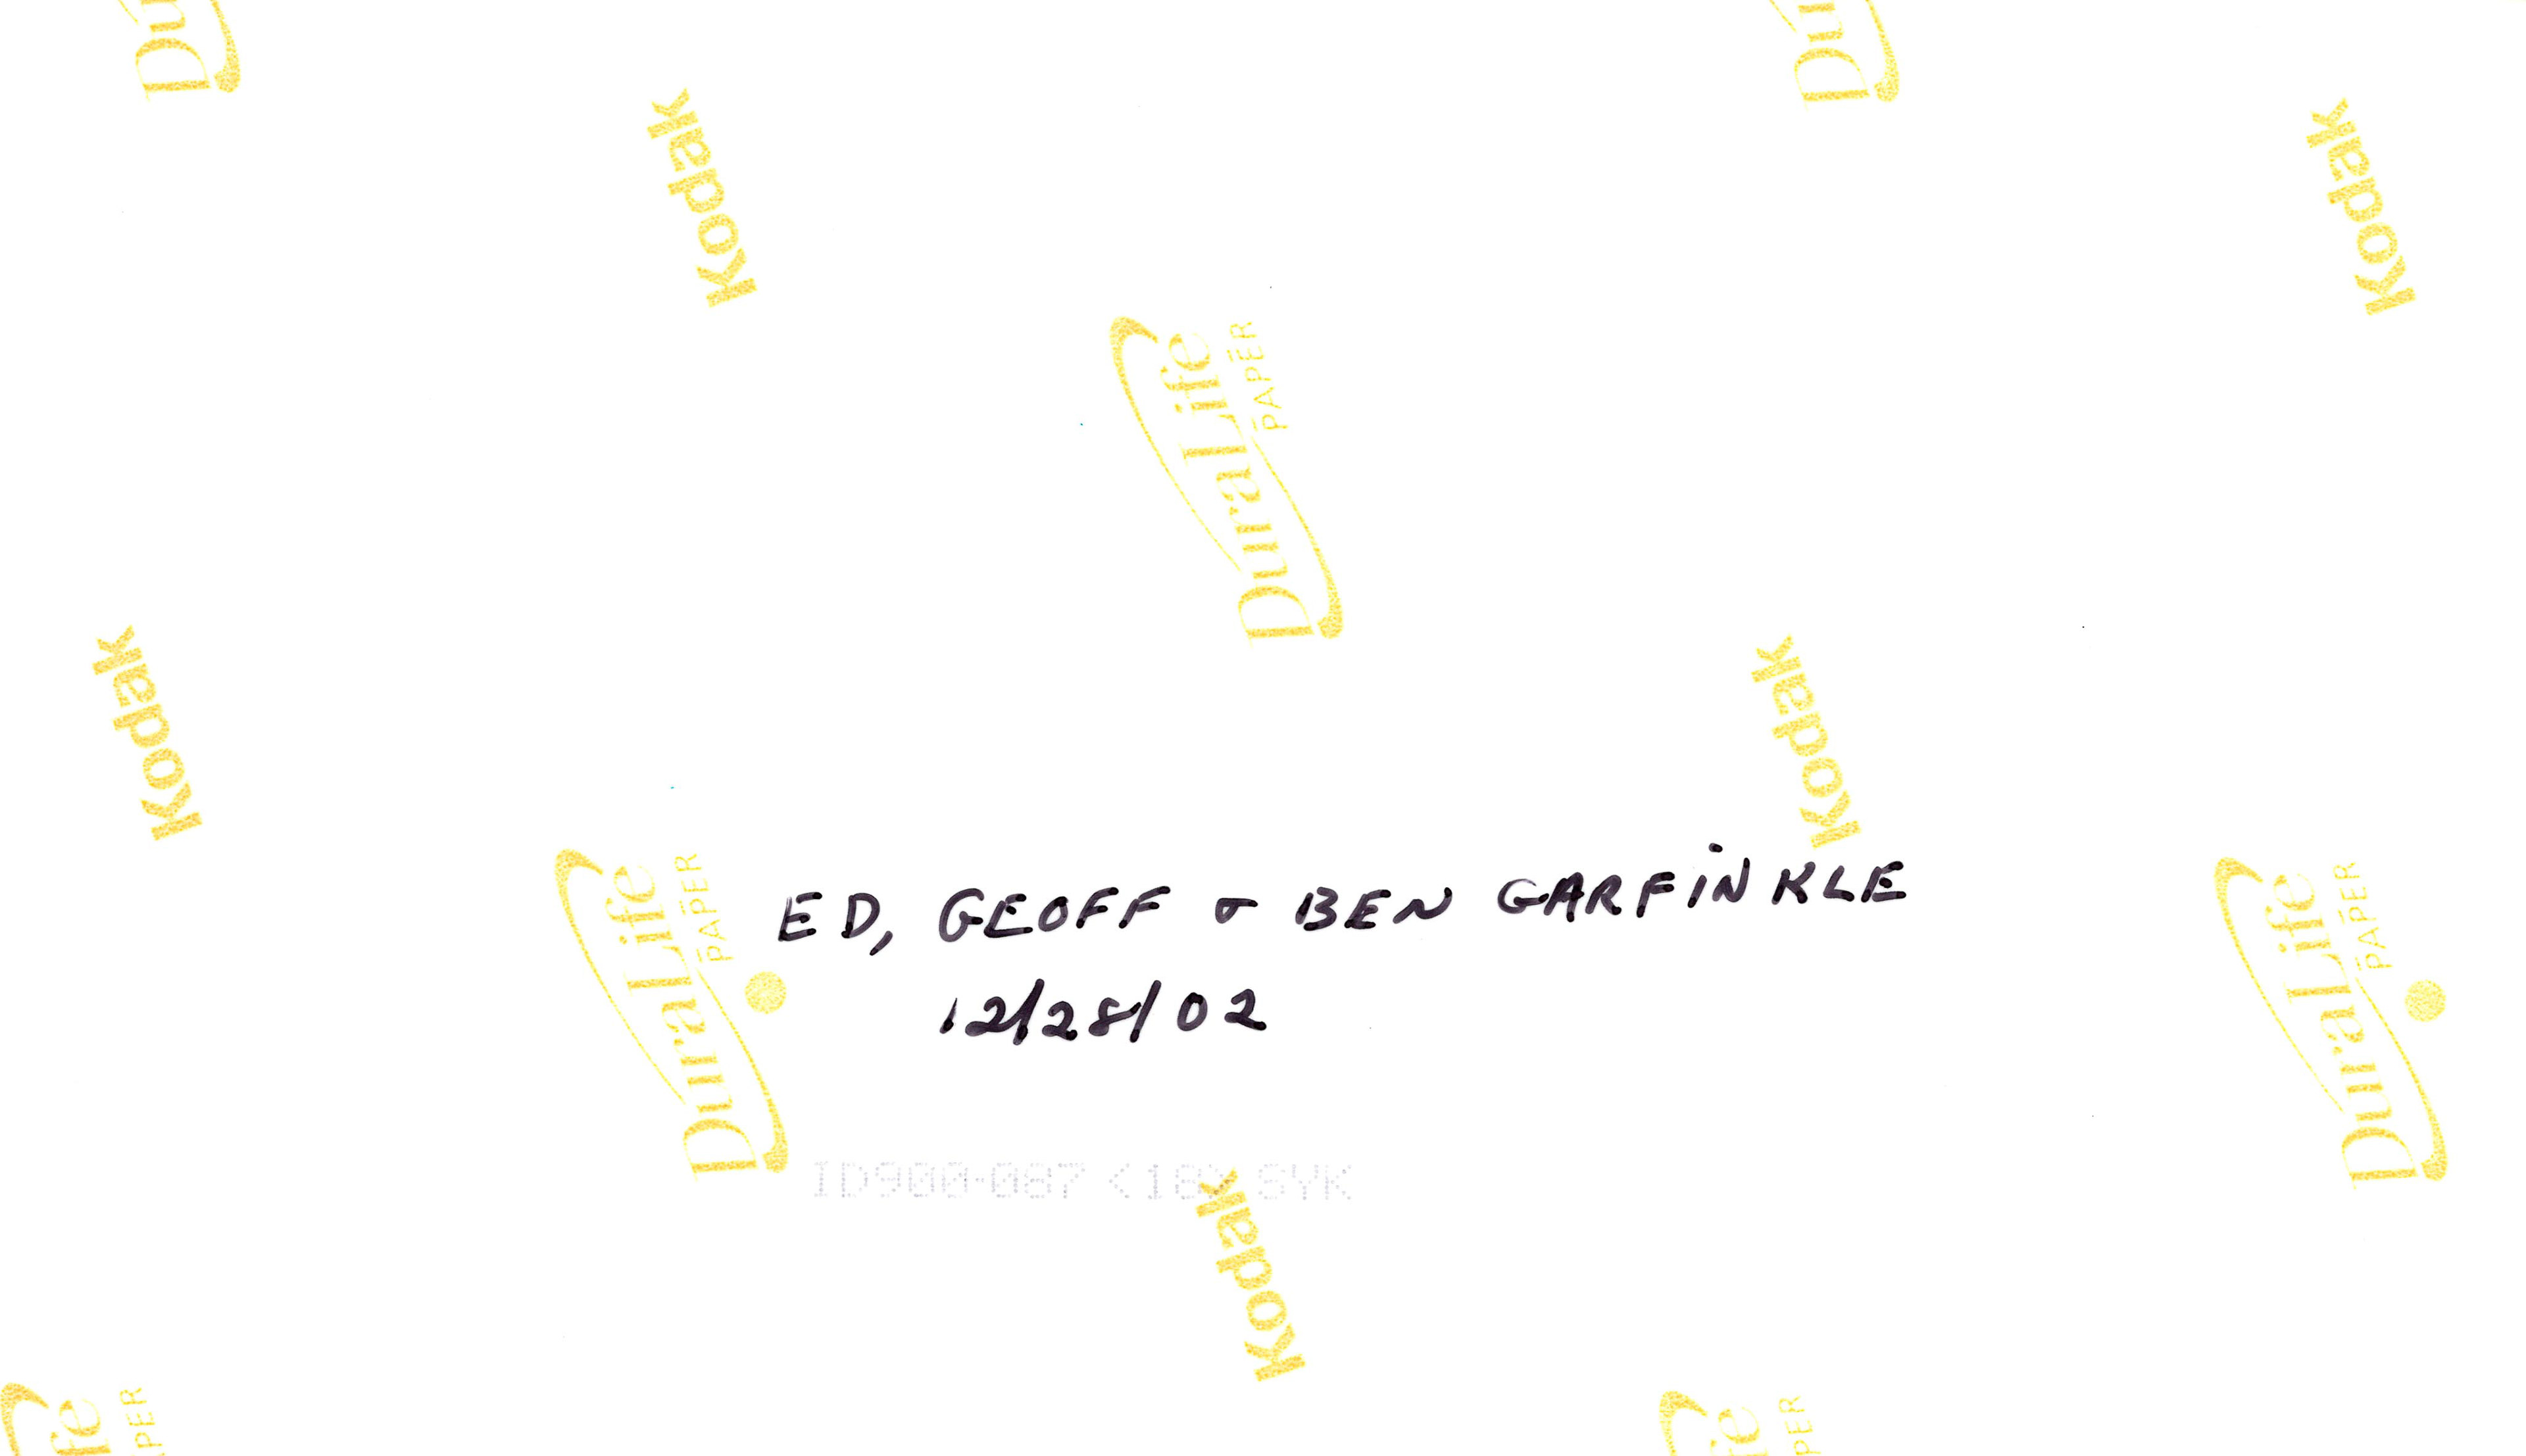 Du
Du
Kodak
Kodak
DuraLife
PAPER
Kodak
Kodak
DuraLife
PAPER
ED, GEOFF & BEN GARFINKLE
12/28/02
DuraLife
PAPER
ID900-087 <18> SYK
Kodak
fe
PER
fe
PER